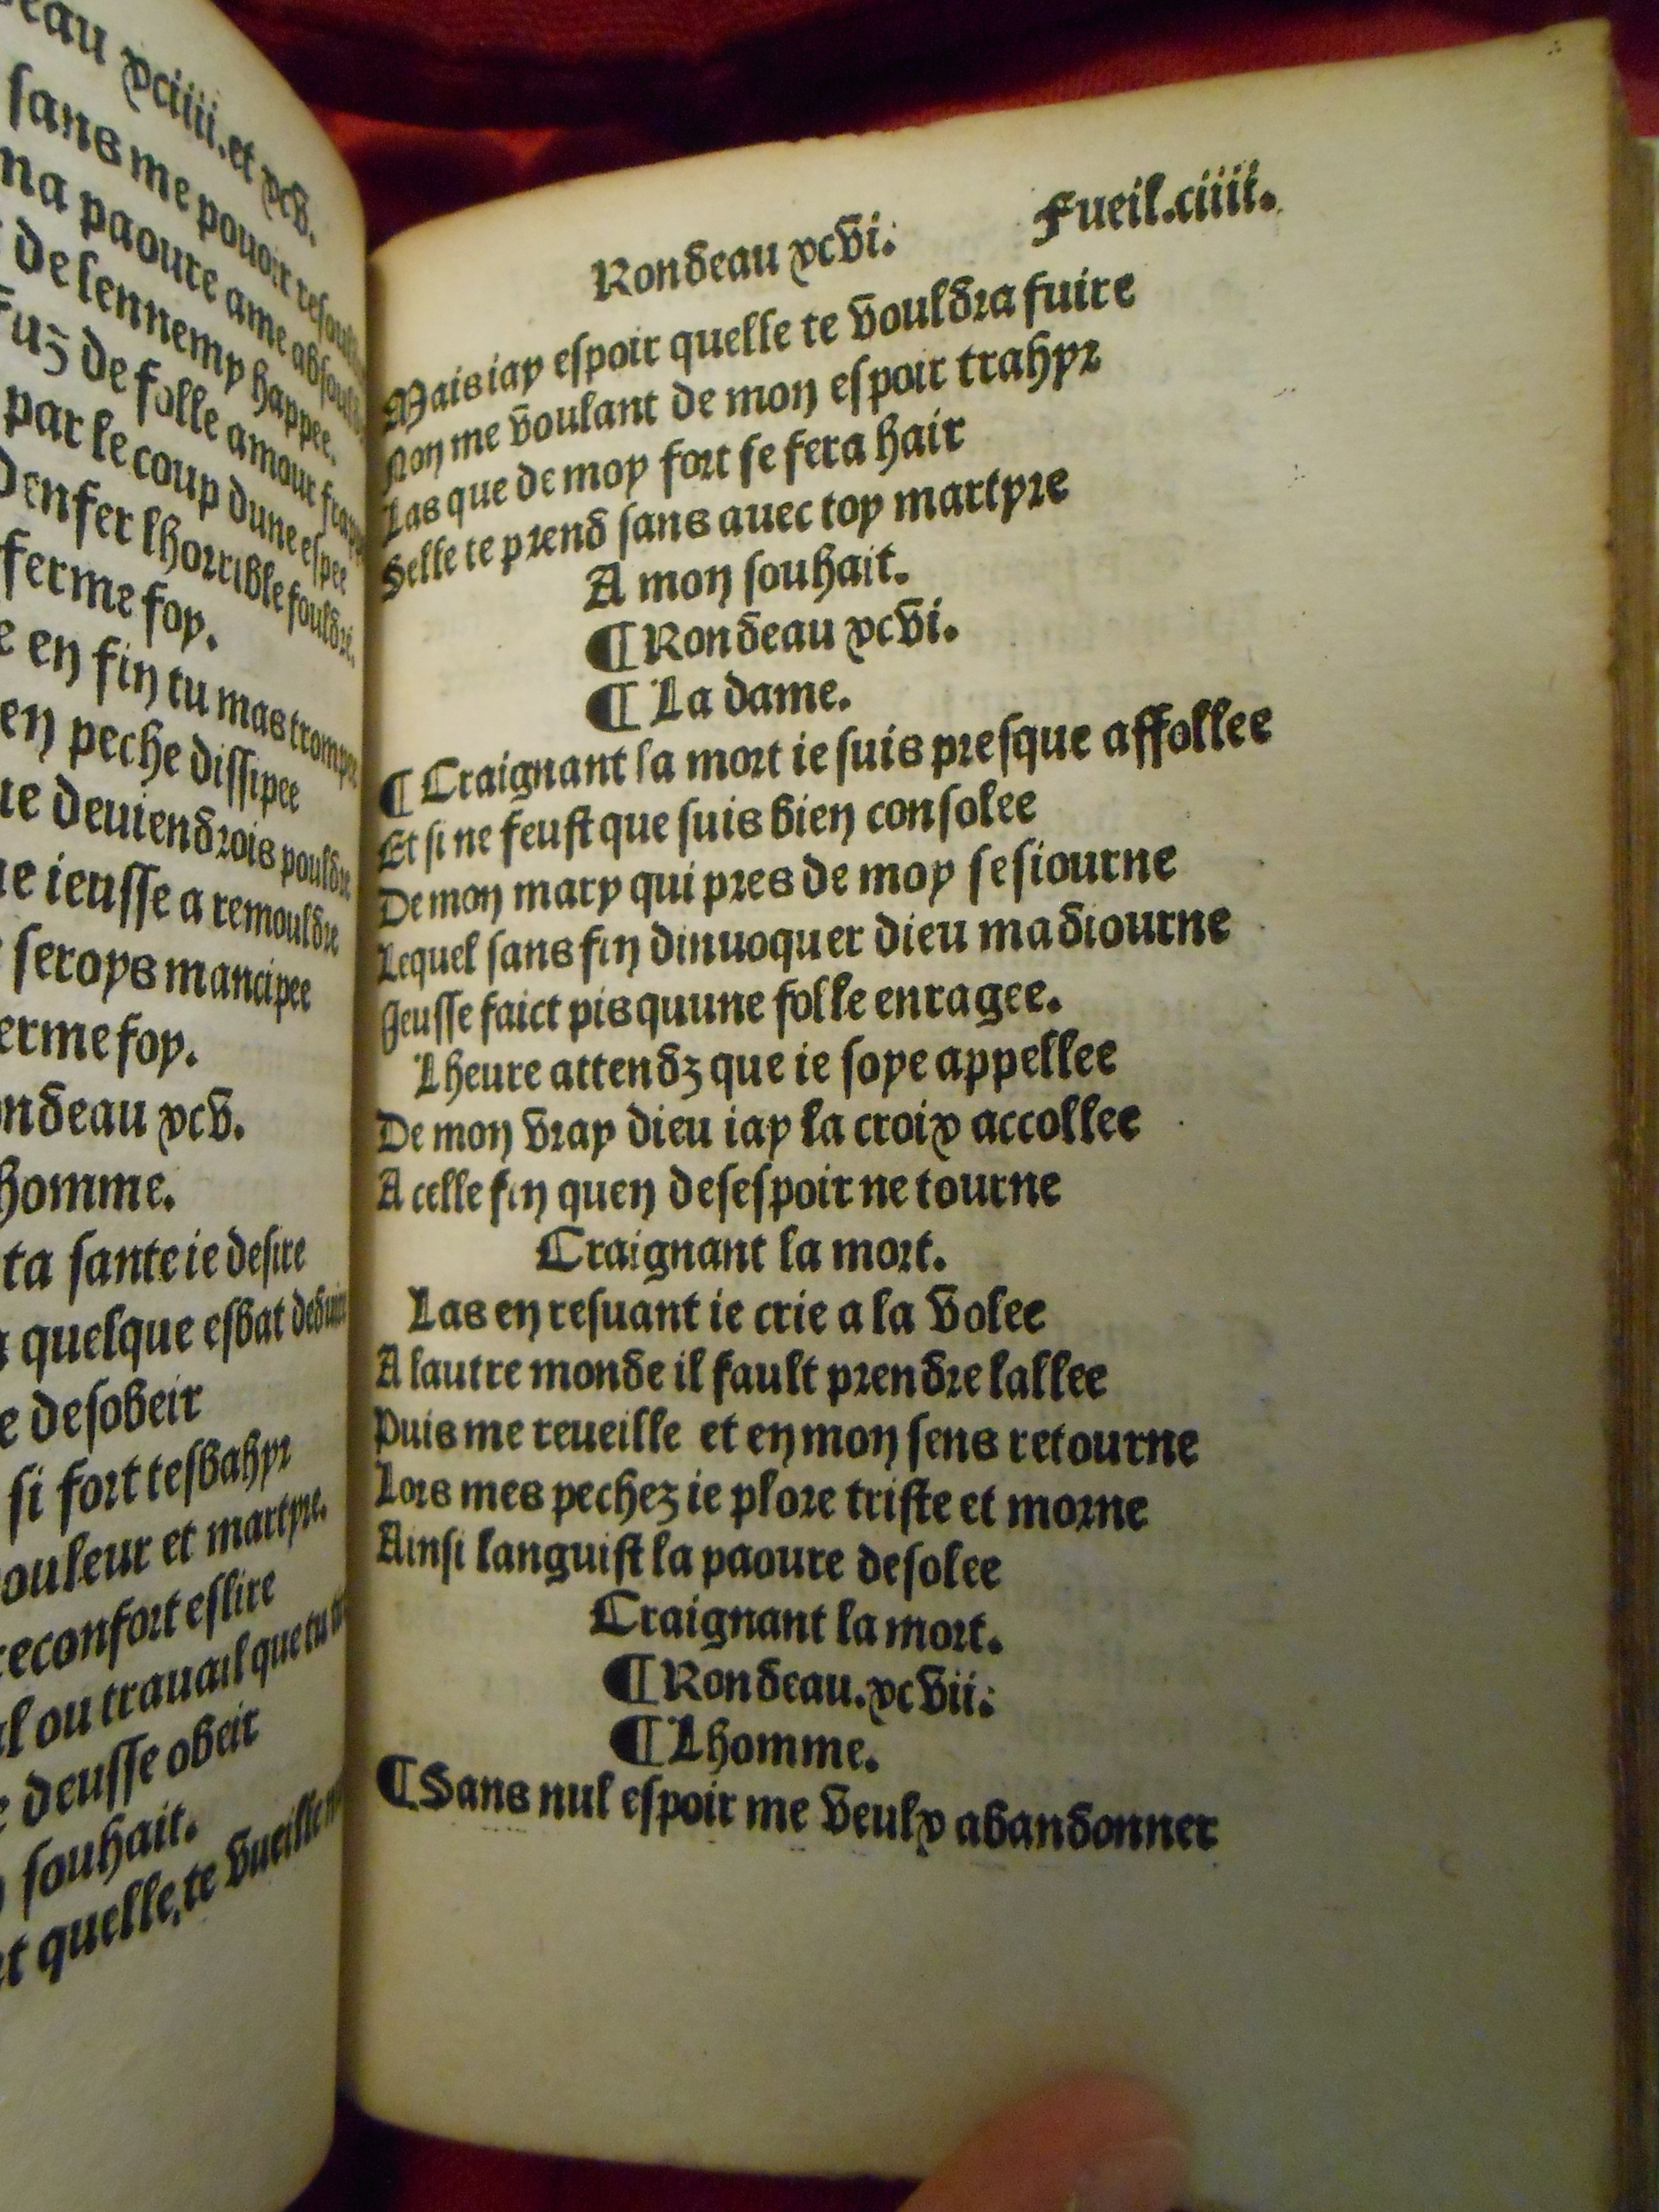 eau xciiii. et xcv.
sans me pouoir
ma paoure ame
de lennemy happee.
Fuz de folle amour
par le coup dune espee
Denfer lhorrible fouldre.
ferme foy.
en fin tu mas trompee
en peche dissipee
te deuiendrois pouldre
ie ieusse a remouldre
seroys mancipee
erme foy.
ondeau xcv.
homme.
ta sante ie desire
quelque esbat
e desobeir
si fort tesbahyr
ouleur et martyre.
reconfort eslire
al ou trauail que tu
e deusse obeir
souhait.
et quelle,te vueille
Rondeau xcvi. Fueil.ciiii.
Mais iay espoir quelle te vouldra fuire
Non me voulant de mon espoir trahyr
Las que de moy fort se fera hair
Selle te prend sans auec toy martyre
A mon souhait.
¶ Rondeau xcvi.
¶ La dame.
¶ Craignant la mort ie suis presque affollee
Et si ne feust que suis bien consolee
De mon mary qui pres de moy sesiourne
Lequel sans fin dinuoquer dieu madiourne
Jeusse faict pis quune folle enragee.
Lheure attendz que ie soye appellee
De mon vray dieu iay la croix accollee
A celle fin quen desespoir ne tourne
Craignant la mort.
Las en resuant ie crie a la volee
A lautre monde il fault prendre lallee
Puis me reueille et en mon sens retourne
Lors mes pechez ie plore triste et morne
Ainsi languist la paoure desolee
Craignant la mort.
¶ Rondeau.xcvii.
¶ Lhomme.
¶ Sans nul espoir me veulx abandonner